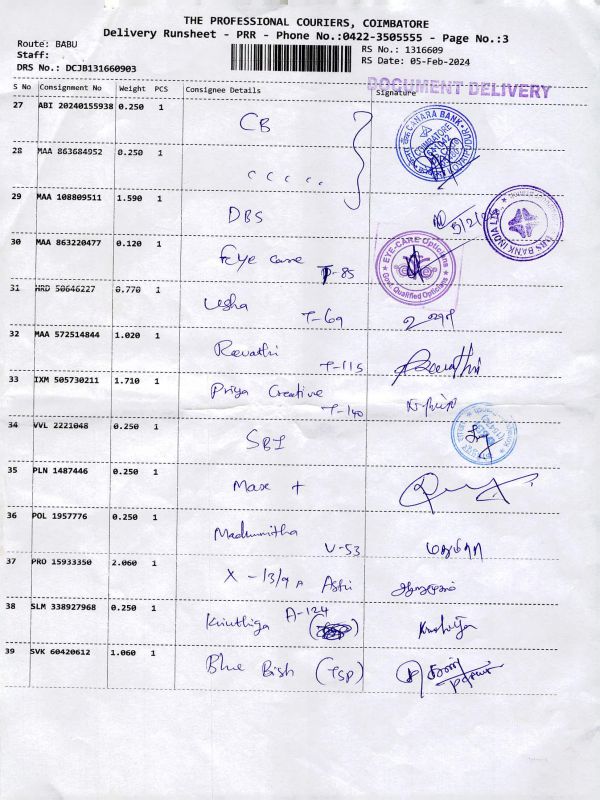 THE PROFESSIONAL COURIERS, COIMBATORE
Delivery Runsheet - PRR - Phone No.:0422-3505555 - Page No.:3
Route: BABU
RS No.: 1316609
Staff:
RS Date: 05-Feb-2024
DRS No.: DCJB131660903
DOCUMENT DELIVERY
S No Consignment No Weight PCS Consignee Details Signature
27 ABI 20240155938 0.250 1 CB
CANARA BANK
COIMBATORE
28 MAA 863684952 0.250 1 c c c c .
29 MAA 108809511 1.590 1 DBS
5/2/
BANK INDIA LTD
30 MAA 863220477 0.120 1 Eye care T-85
EYE-CARE Opticians
Govt. Qualified Opticians
31 HRD 50646227 0.770 1 Usha T-69 உஷா
32 MAA 572514844 1.020 1 Revathi T-115 Revathi
33 IXM 505730211 1.710 1 Priya Creative T-140
34 VVL 2221048 0.250 1 SBI
35 PLN 1487446 0.250 1 Max +
36 POL 1957776 0.250 1 Madhumitha V-53
37 PRO 15933350 2.060 1 X - 13/9 A
38 SLM 338927968 0.250 1 Kiruthiga A-124
39 SVK 60420612 1.060 1 Blue Bish (TSP)